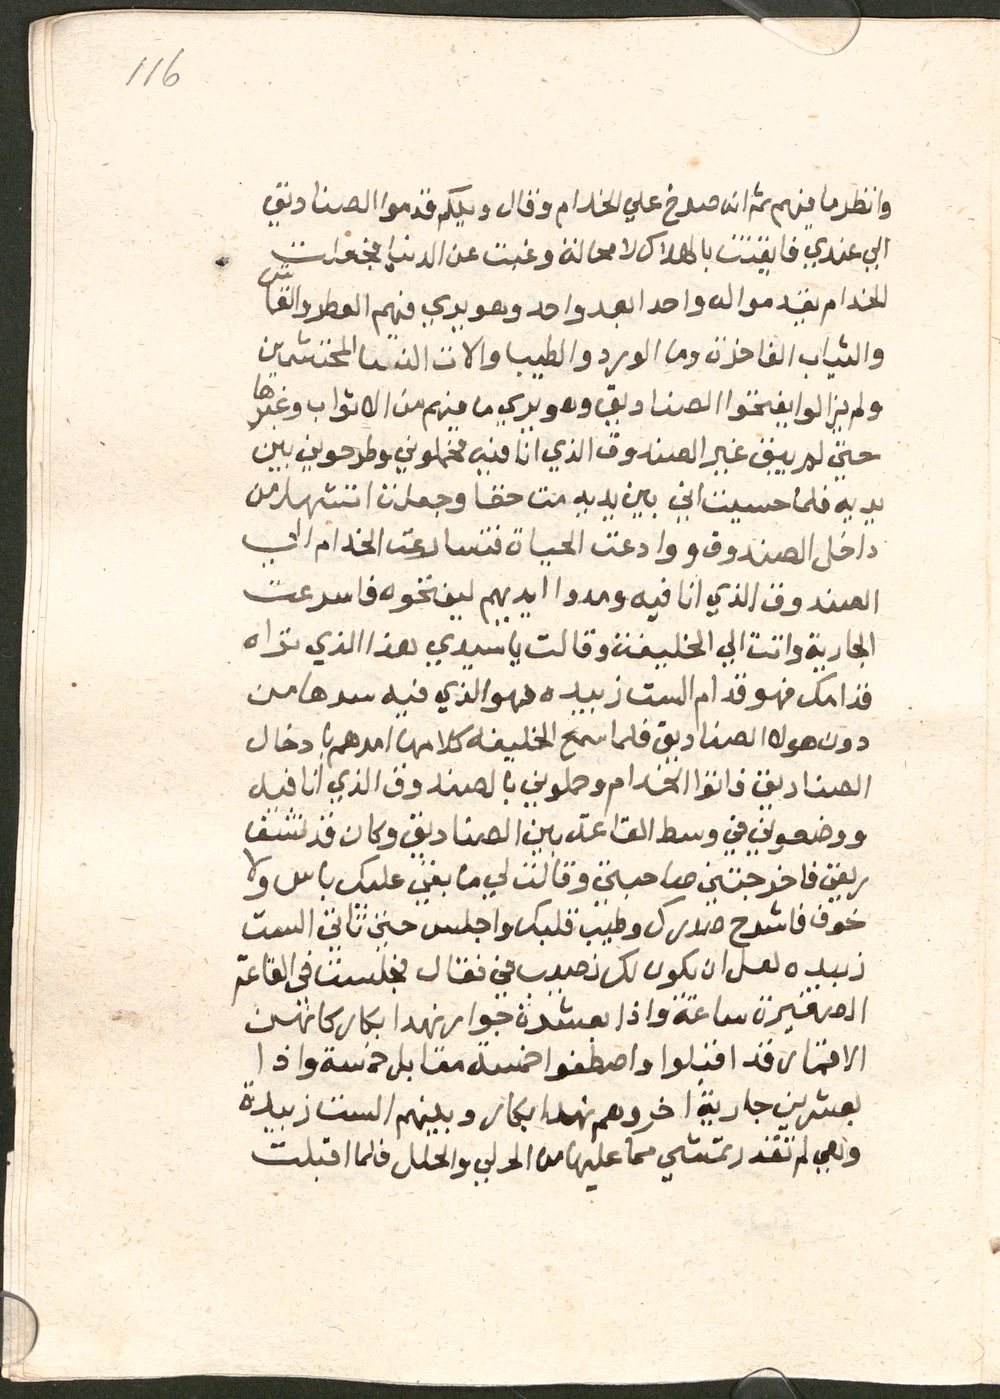 116
وانظر ما فيهم ثم انه صرخ علي الخدام وقال ويلكم قدموا الصناديق
الي عندي فايقنت بالهلاك لا محالة وغبت عن الدنيا فجعلت
الخدام يقدموا له واحدا بعد واحد وهو يري فيهم العطر والقماش
والثياب الفاخرة وما الورد والطيب والات النسا المحتشمين
ولم يزالوا يفتحوا الصناديق وهو يري ما فيهم من الاثواب وغيرها
حتي لم يبق غير الصندوق الذي انا فيه فحملوني وطرحوني بين
يديه فلما حسيت اني بين يديه مت حقا وجعلت اتشهد من
داخل الصندوق ووادعت الحياة فتسارعت الخدام الي
الصندوق الذي انا فيه ومدوا ايديهم ليفتحوه فاسرعت
الجارية واتت الي الخليفة وقالت يا سيدي هذا الذي تراه
قدامك فهو قدام الست زبيده فهو الذي فيه سرها من
دون هولا الصناديق فلما سمع الخليفه كلامها امرهم بادخال
الصناديق فاتوا الخدام وحملوني بالصندوق الذي انا فيه
ووضعوني في وسط القاعة بين الصناديق وكان قد نشف
ريقي فاخرجتني صاحبتي وقالت لي ما بقي عليك باس ولا
خوف فاشرح صدرك وطيب قلبك واجلس حتي تاتي الست
زبيده لعل ان يكون لك نصيب في فقال فجلست في القاعة
الصغيرة ساعة واذا بعشرة جوار نهدا بكار كانهن
الاقمار قد اقبلوا واصطفوا خمسة مقابل خمسة واذا
بعشرين جارية اخر وهم نهدا بكار وبينهم الست زبيدة
وهي لم تقدر تمشي مما عليها من الحلي والحلل فلما اقبلت